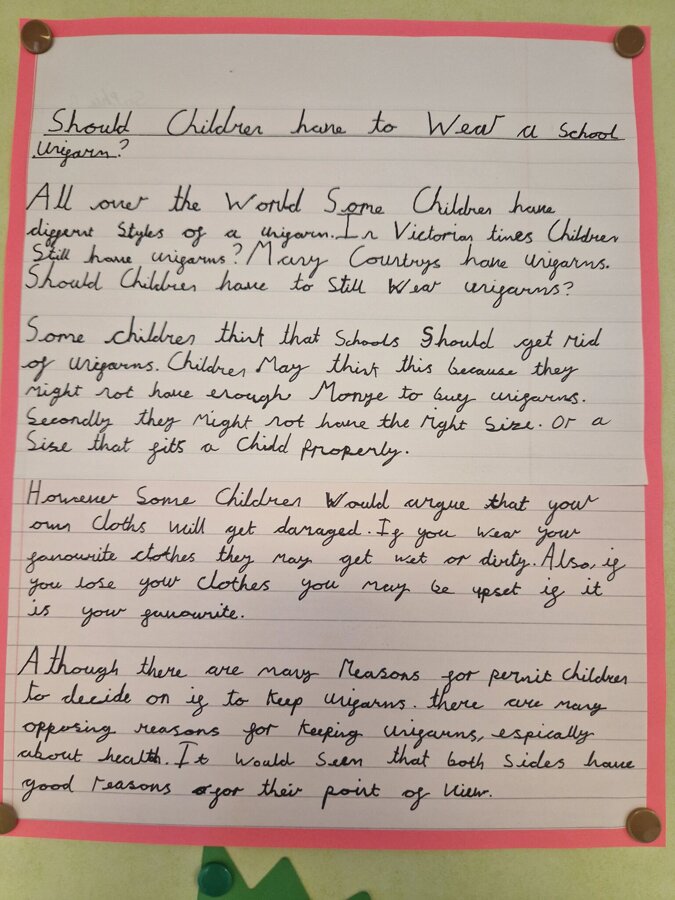 Should Children have to Wear a School
Uniform?
All over the World Some Children have
differnt Styles of a uniform. In Victorian times Children
Still have uniforms? Many Countrys have uniforms.
Should Children have to Still Wear uniforms?
Some children think that Schools Should get rid
of uniforms. Children May think this because they
Might not have enough Monye to buy uniforms.
Secondly they Might not have the right Size. Or a
Size that fits a Child Properly.
However Some Children Would argue that your
own Cloths will get damaged. If you wear your
favourite clothes they may get wet or dirty. Also, if
you lose your Clothes you may be upset if it
is your favourite.
Athough there are many Reasons for permit Children
to decide on if to Keep uniforms. there are many
opposing reasons for Keeping uniforms, espically
about health. It Would Seem that both Sides have
good reasons for their point of View.